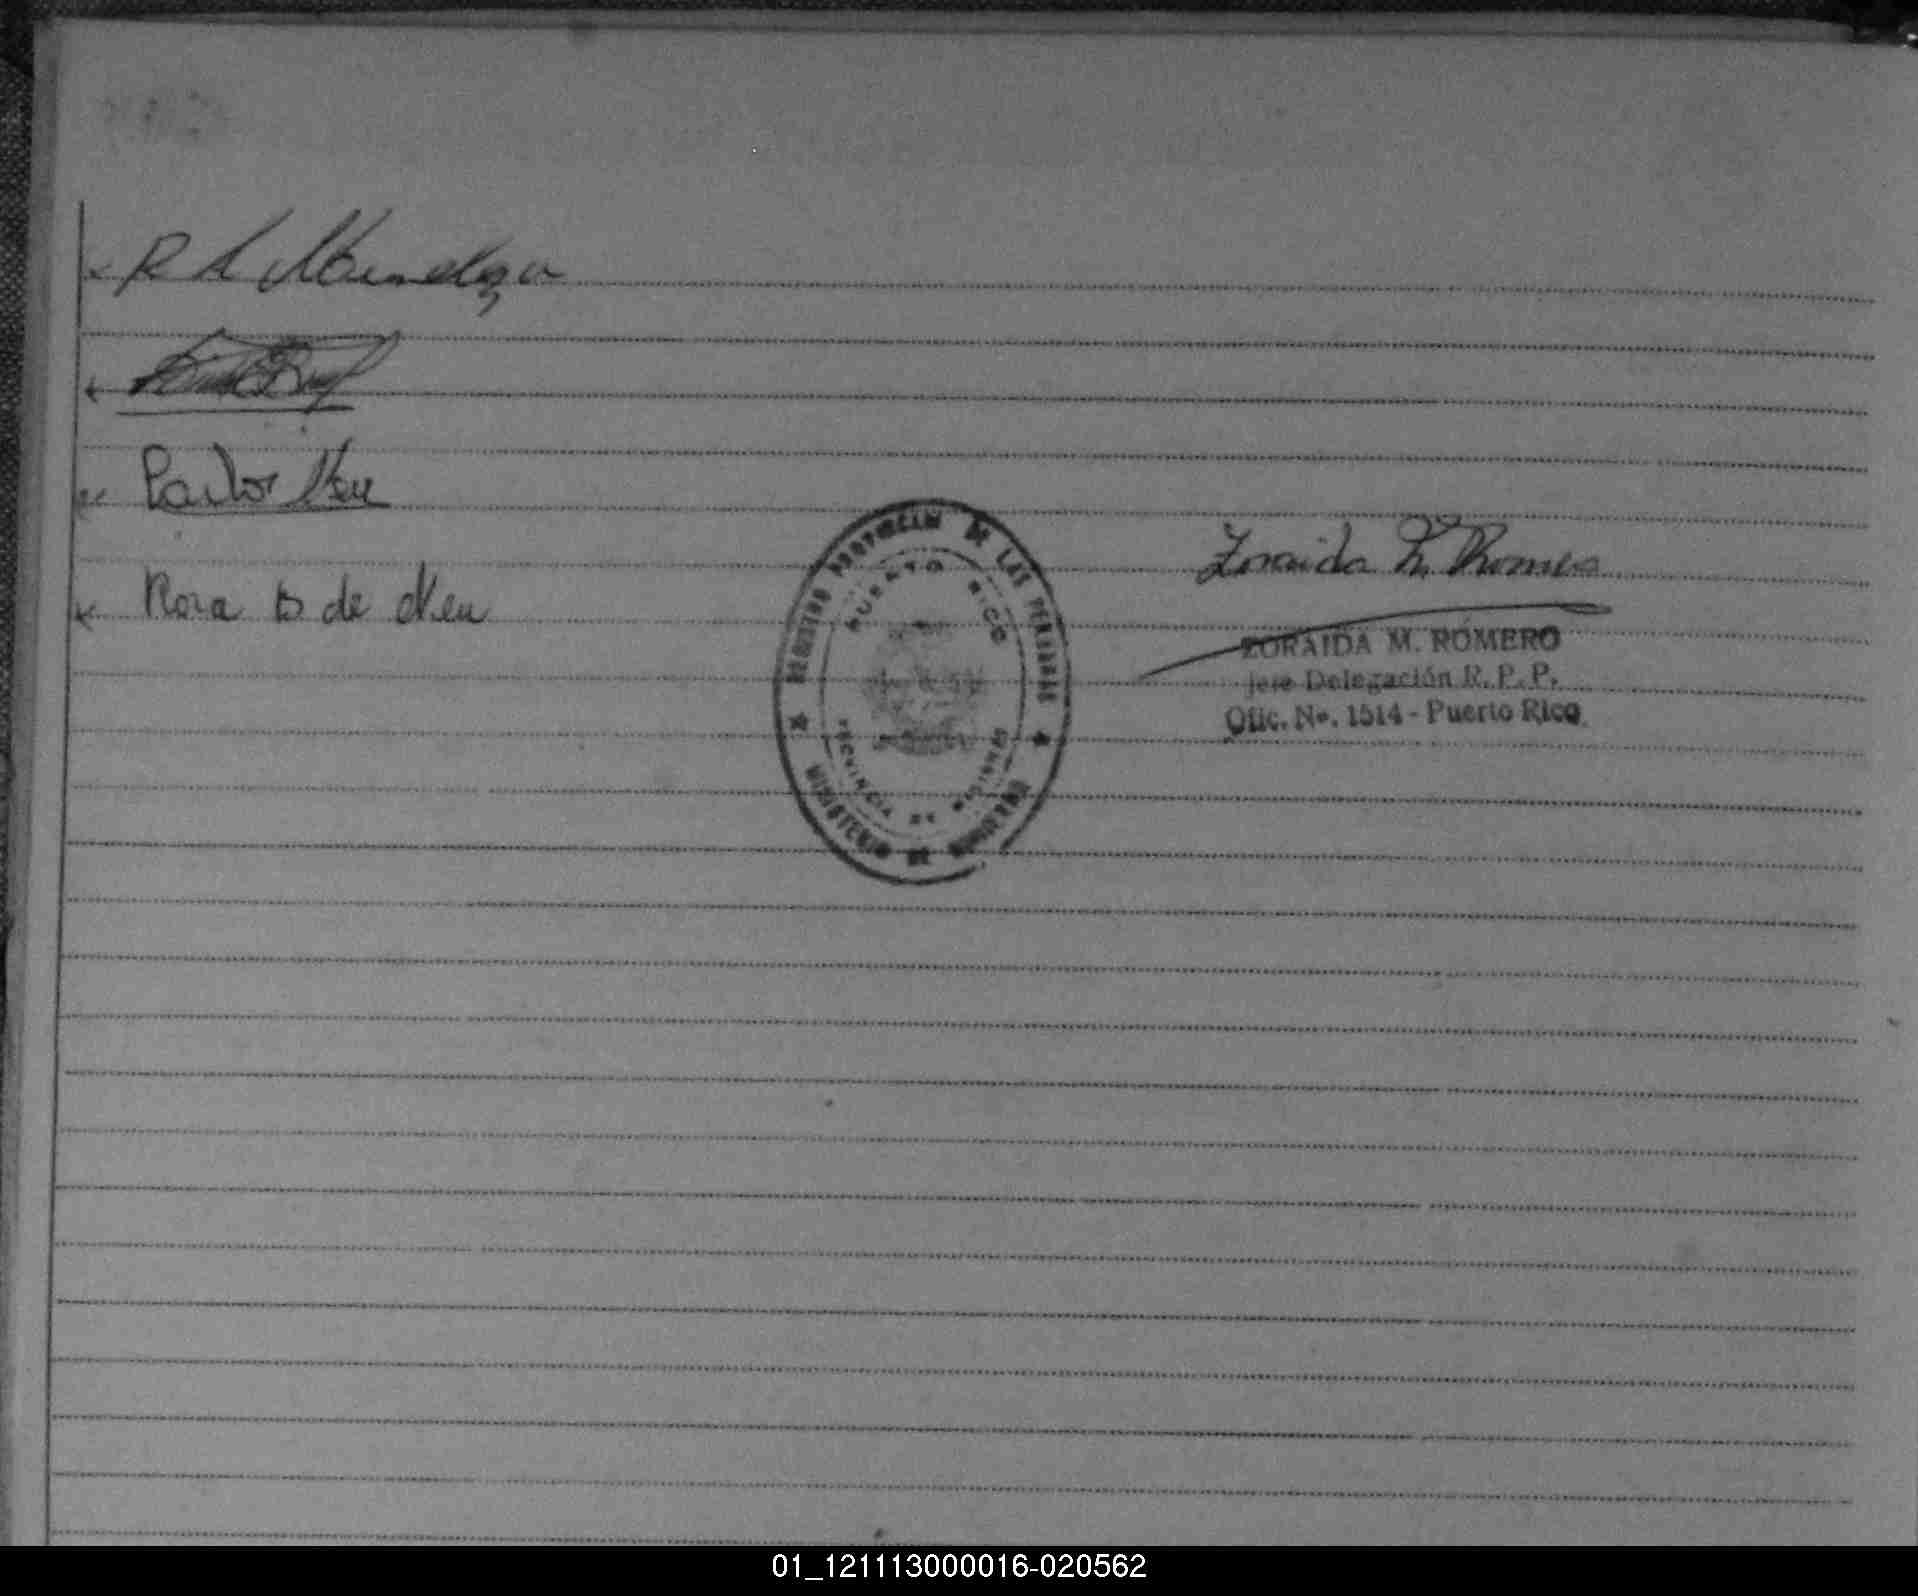 R A Mendoza
Neu
Rosa B de Neu
REGISTRO PROVINCIAL DE LAS PERSONAS
PUERTO RICO
PROVINCIA DE MISIONES
MINISTERIO DE GOBIERNO
Zoraida M. Romero
ZORAIDA M. ROMERO
Jefe Delegación R. P. P.
Ofic. No. 1514 - Puerto Rico
01_121113000016-020562